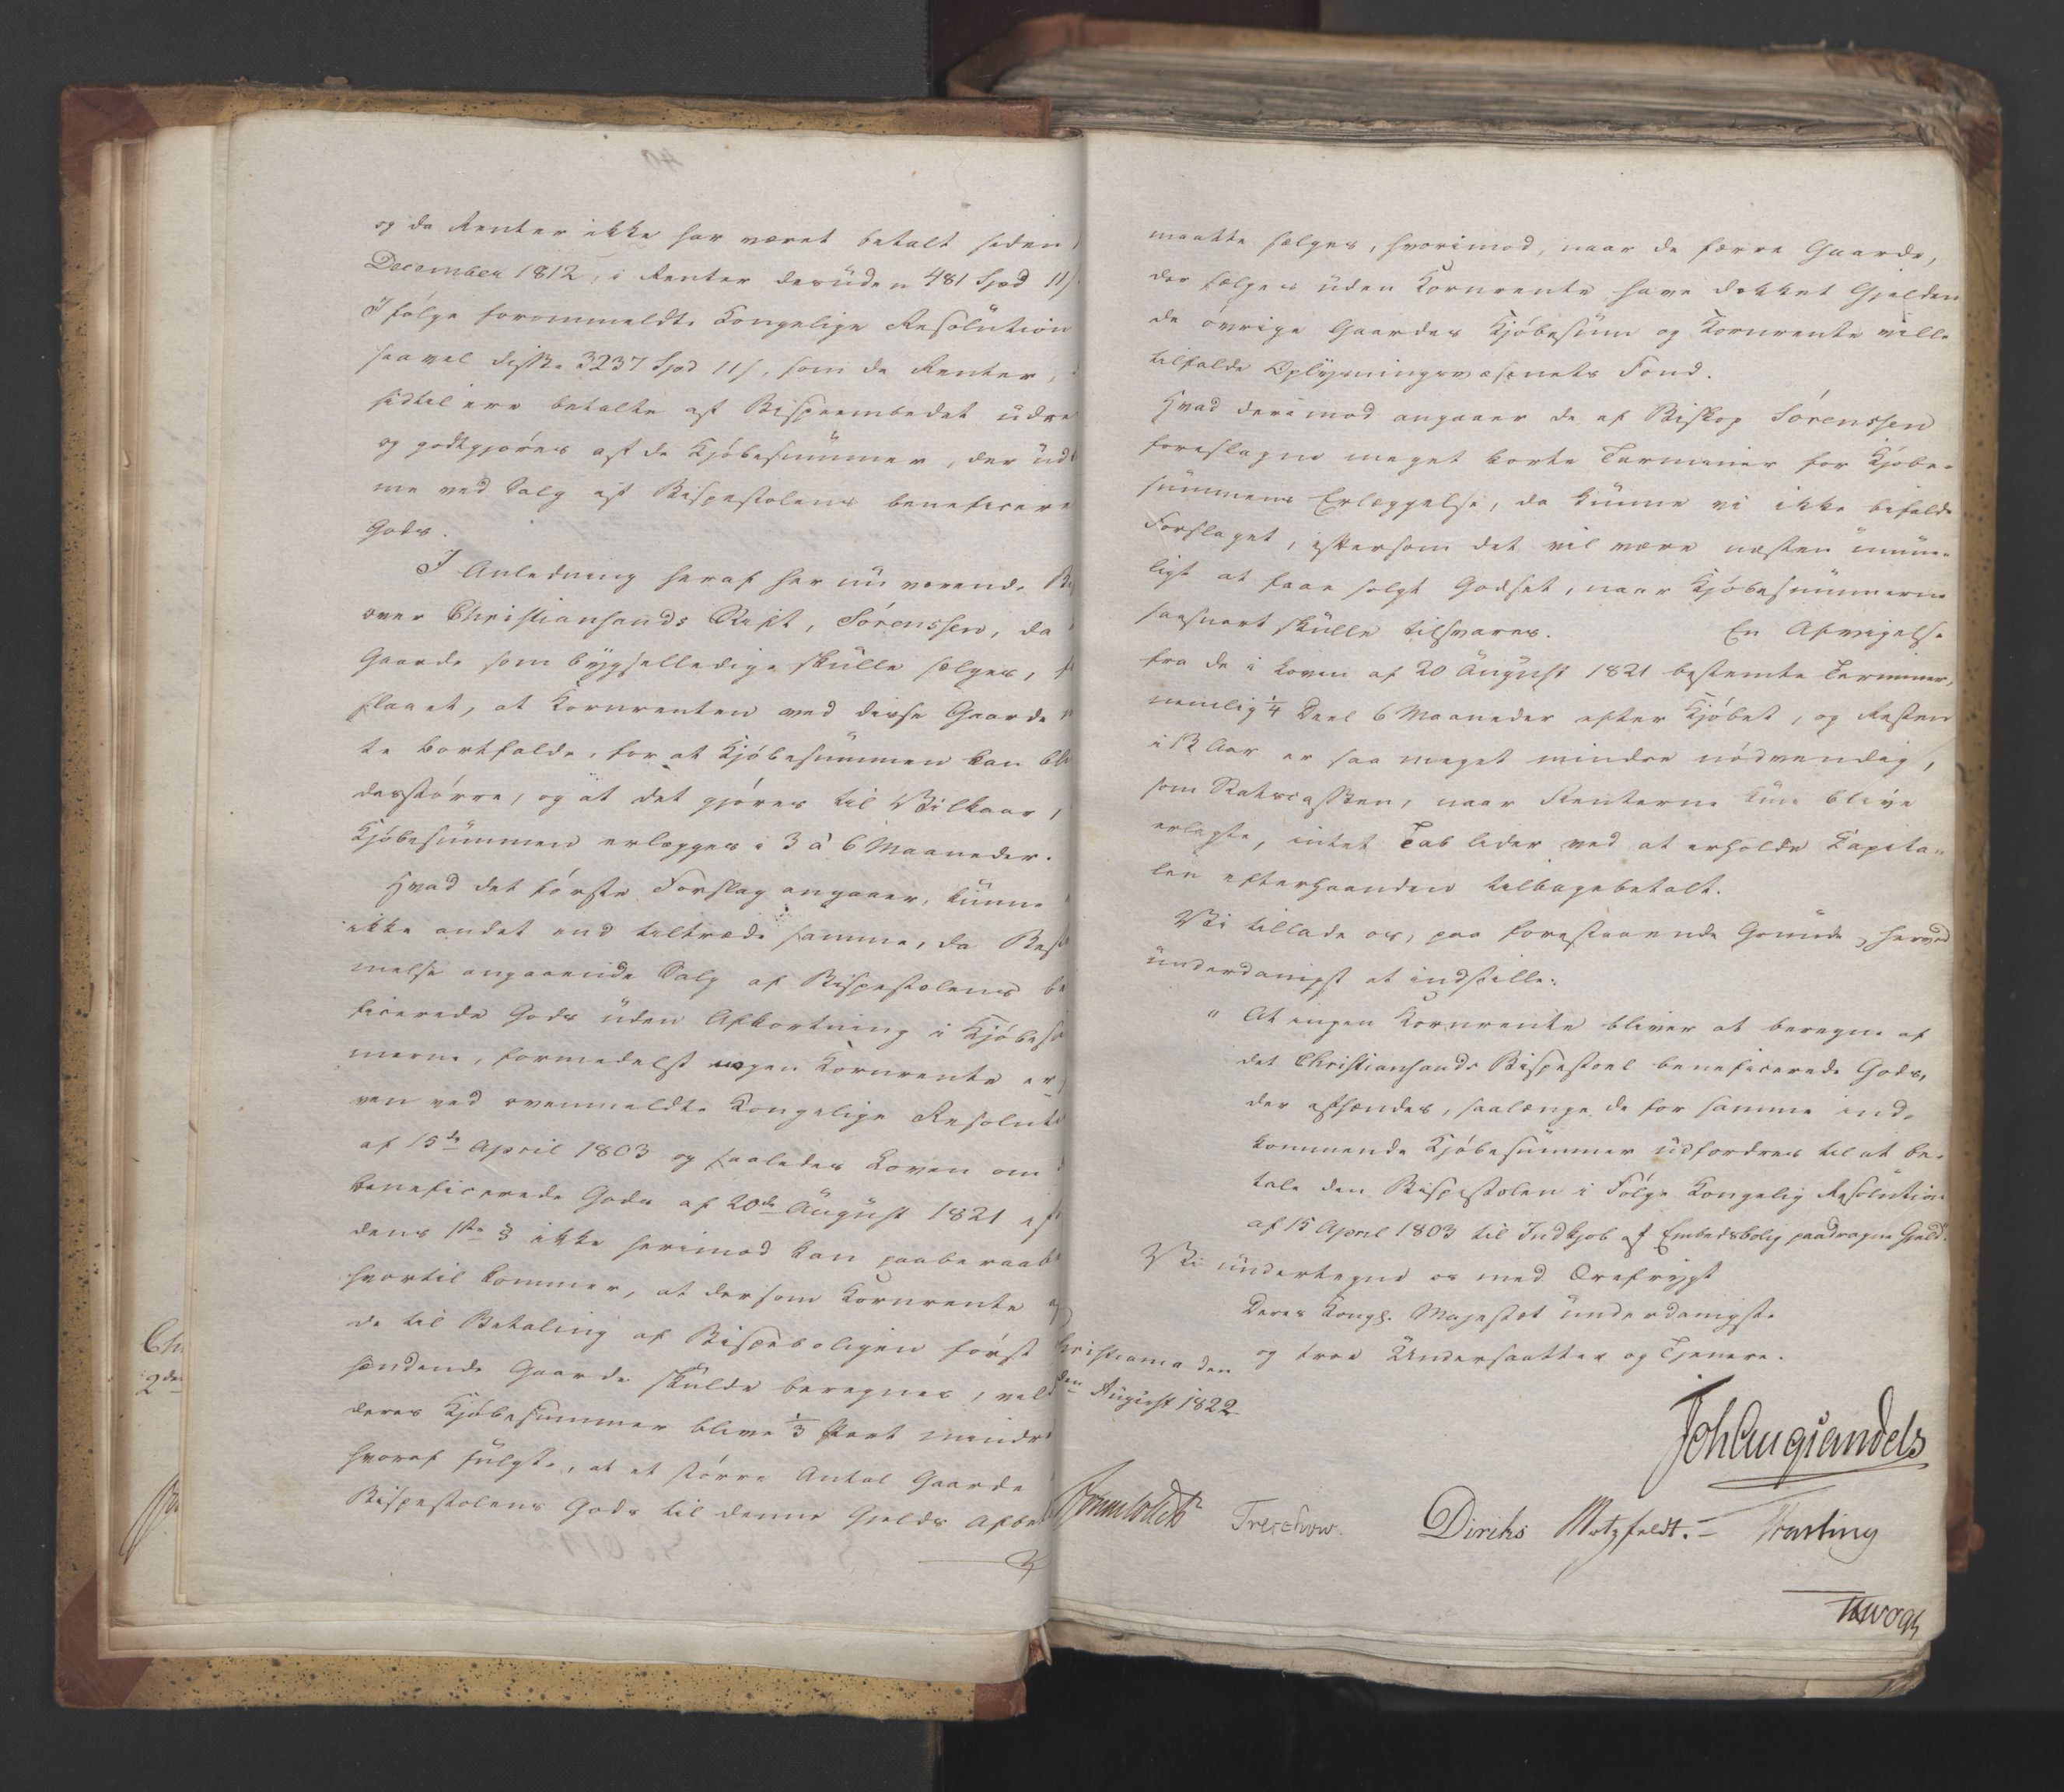 og da Renter ikke har været betalt siden
December 1812, i Renter desüden 481 Spd 11/
Ifølge forommeldte Kongelige Resolütion
saavel disse 3237 Spd 11/, som de Renter,
hidtil ere betalte af Bispeembedet üdre
og godtgjøres af de Kjøbesummer, der üd
me ved Salg af Bispestolens beneficere
Gods.
I Anledning heraf har nü værende Bi
over Christiansands Stift, Sørenssen, da
Gaarde som bygselledige skülle sælges, f
slaaet, at Kornrenten ved disse Gaarde
te bortfalde, for at Kjøbesummen kan bli
desstørre, og at det gjøres til Vilkaar,
Kjøbesümmen erlægges i 3 à 6 Maaneder.
Hvad det første Forslag angaaer, künne
ikke andet end tiltræde samme, da Best
melse angaaende Salg af Bispestolens be
ficerede Gods üden Afkortning i Kjøbesü
merne, formedelst nogen Kornrente er
ven ved ovenmeldte Kongelige Resolut
af 15de April 1803 og saaledes Loven om
beneficerede Gods af 20de Aügüst 1821 ef
dens 1ste § ikke herimod kan paaberaabe
hvortil kommer, at dersom Kornrente af
de til Betaling af Bispeboligen først
hændende Gaarde skülde beregnes, vil
deres Kjøbesummer blive 1/3 Part mindre
hvoraf fülgte, at et større Antal Gaarde
Bispestolens Gods til denne Gjelds Afbe
maatte sælges, hvorimod, naar de færre Gaarde,
der sælges üden Kornrente have dækket Gjelden
de øvrige Gaardes Kjøbesüm og Kornrente ville
tilfalde Oplysningsvæsenets Fond.
Hvad derimod angaaer de af Biskop Sørenssen
foreslagne meget korte Terminer for Kjøbe-
sümmens Erlæggelse, da künne vi ikke bifalde
Forslaget, eftersom det vil være næsten ümüe-
ligt at faae solgt Godset, naar Kjøbesümmerne
saasnart skülle tilsvares. En Afvigelse
fra de i Loven af 20 Aügüst 1821 bestemte Terminer,
nemlig 1/4 Deel 6 Maaneder efter Kjøbet, og Resten
i 12 Aar er saa meget mindre nødvendig,
som Statscassen, naar Renterne kün blive
erlagte, intet Tab lider ved at erholde Capita-
len efterhaanden tilbagebetalt.
Vi tillade os, paa forestaaende Gründe, herved
ünderdanigst at indstille:
" At ingen Kornrente bliver at beregne af
det Christiansands Bispestoel beneficerede Gods,
der afhændes, saalænge de for samme ind-
kommende Kjøbesümmer üdfordres til at be-
tale den Bispestolen i Følge Kongelig Resolütion
af 15 April 1803 til Indkjøb af Embedsbolig paadragne Gjeld."
Vi ündertegne os med Ærefrygt
Deres Kongl. Majestæt ünderdanigste
og troe Undersaatter og Tjenere.
hristiania den
den Aügüst 1822
Joh Aug Sandels
Sommerhielm Treschow. Diriks Motzfeldt. Krafting